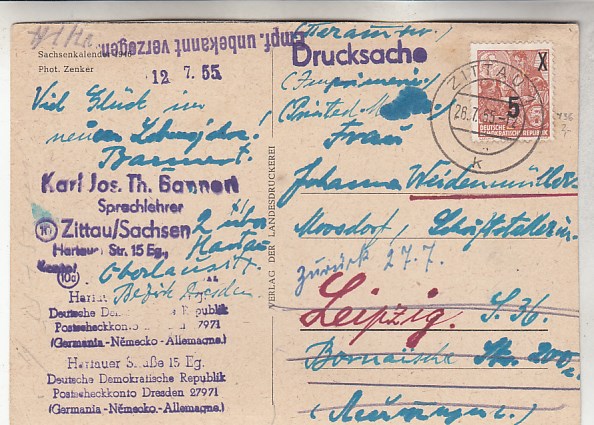 Sachsenkalender 1946
Phot. Zenker
Empf. unbekannt verzogen
12 7. 55.
Viel Glück im
neuen Lebensjahr!
Bannert.
Karl Jos. Th. Bannert
Sprachlehrer
(10) Zittau/Sachsen
Hartauer Str. 15 Eg.,
(10a)
2 über
Hartau
Oberlausitz.
Bezirk Dresden.
Deutsche Dem Republik
Postscheckkonto 27971
(Germania-Německo-Allemagne.)
Hartauer Straße 15 Eg.
Deutsche Demokratische Republik
Postscheckkonto Dresden 27971
(Germania-Německo.-Allemagne.)
VERLAG DER LANDESDRUCKEREI
Drucksache
(Printed
Frau
Johanna Weidenmüller
Moosdorf, Schriftstellerin.
zurück 27.7.
Leipzig. S. 36.
Bornaische Str. 200
ZITTAU
26.7.55
k
X
5
DEUTSCHE
DEMOKRATISCHE REPUBLIK